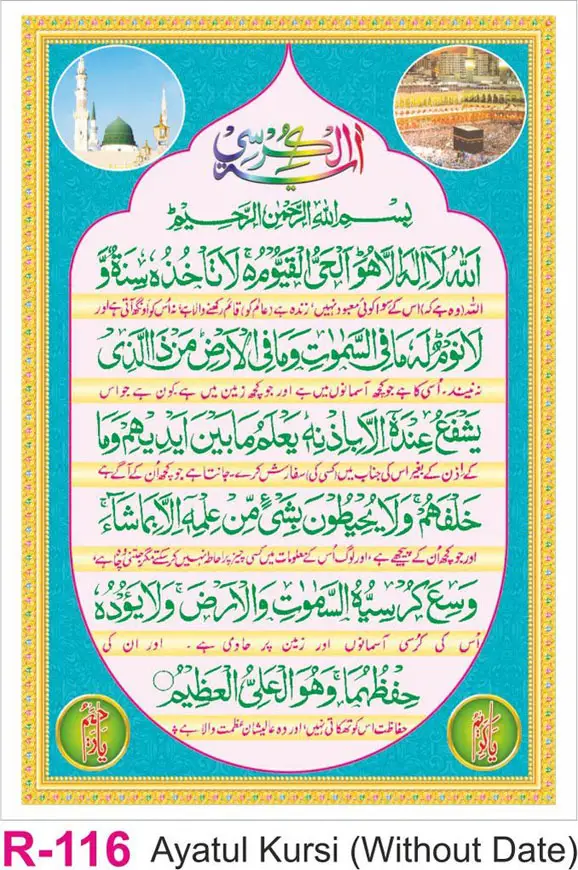 اٰیة الکرسی
بِسْمِ اللهِ الرَّحْمٰنِ الرَّحِيْمِ
اَللهُ لَآ اِلٰهَ اِلَّا هُوَ اَلْحَيُّ الْقَيُّوْمُ ە لَا تَاْخُذُهٗ سِنَةٌ وَّ
اللہ (وہ ہے کہ) اس کے سوا کوئی معبود نہیں' زندہ ہے (عالم کو) قائم رکھنے والا ہے' نہ اُس کو اونگھ آتی ہے اور
لَا نَوْمٌ لَهٗ مَا فِى السَّمٰوٰتِ وَمَا فِى الْاَرْضِ مَنْ ذَا الَّذِىْ
نہ نیند۔ اُسی کا ہے جو کچھ آسمانوں میں ہے اور جو کچھ زمین میں ہے۔ کون ہے جو اس
يَشْفَعُ عِنْدَهٗ اِلَّا بِاِذْنِهٖ يَعْلَمُ مَا بَيْنَ اَيْدِيْهِمْ وَمَا
کے اذن کے بغیر اس کی جناب میں (کسی کی) سفارش کرے۔ جانتا ہے جو کچھ اُن کے آگے ہے
خَلْفَهُمْ وَلَا يُحِيْطُوْنَ بِشَىْءٍ مِّنْ عِلْمِهٖٓ اِلَّا بِمَا شَآءَ
اور جو کچھ اُن کے پیچھے ہے، اور لوگ اُس کے معلومات میں کسی چیز پر احاطہ نہیں کر سکتے مگر جتنی وہ چاہے،
وَسِعَ كُرْسِيُّهُ السَّمٰوٰتِ وَالْاَرْضَ وَلَا يَـُٔوْدُهٗ
اُس کی کرسی آسمانوں اور زمین پر حاوی ہے۔ اور ان کی
حِفْظُهُمَا وَهُوَ الْعَلِىُّ الْعَظِيْمُ
حفاظت اس کو تھکاتی نہیں' اور وہ عالیشان عظمت والا ہے
یارحیم
یاکریم
R-116 Ayatul Kursi (Without Date)